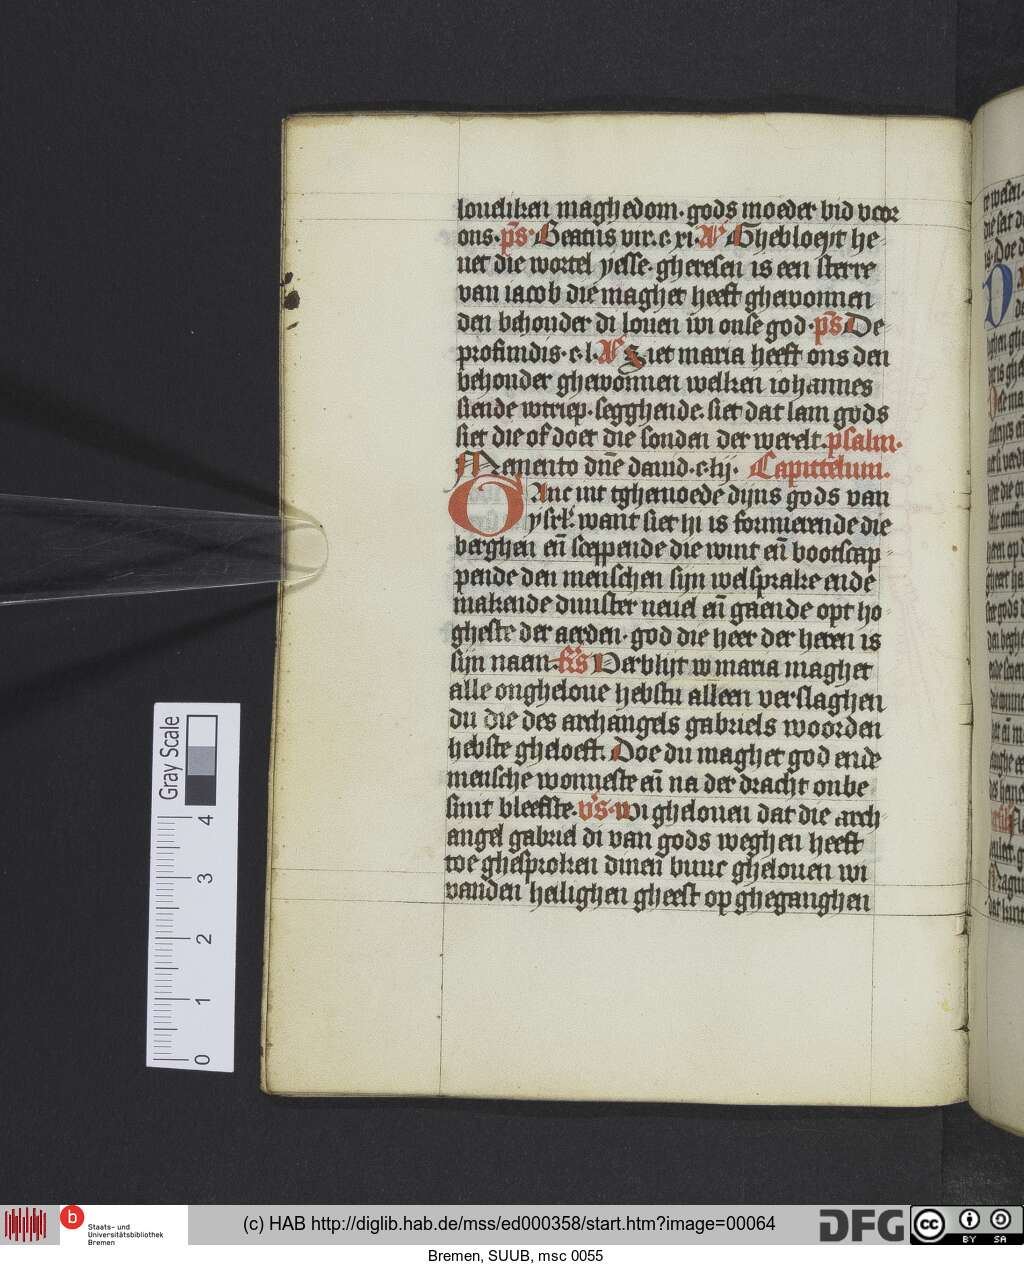 loueliken maghedom. gods moeder bid voor
ons. ps̄ Beatus vir. c. xi. A Ghebloeyt he
uet die wortel yesse. gheresen is een sterre
van iacob die maghet heeft ghewonnen
den behouder di louen wi onse god. ps̄ De
profundis. c. l. A Siet maria heeft ons den
behouder ghewonnen welken iohannes
siende wtriep. segghende. siet dat lam gods
siet die of doet die sonden der werelt. psalm.
Memento dn̄e dauid. c. lij. Capittelum.
DAnc int tghemoede dijns gods van
ysrl. want siet hi is formierende die
berghen en̄ sceppende die wint en̄ bootscap
pende den menschen sijn welsprake ende
makende duuster neuel en̄ gaende opt ho
gheste der aerden. god die heer der heren is
sijn naem. Verblijt w maria maghet
alle onghelove hebstu alleen verslaghen
du die des archangels gabriels woorden
hebste gheloeft. Doe du maghet god ende
mensche wonneste en̄ na der dracht onbe
smit bleefste. vs̄. wi ghelouen dat die arch
angel gabriel di van gods weghen heeft
toe ghesproken dinen buuc ghelouen wi
vanden heilighen gheest op gheganghen
Gray Scale
4
3
2
1
0
b
Staats- und
Universitätsbibliothek
Bremen
(c) HAB http://diglib.hab.de/mss/ed000358/start.htm?image=00064
DFG
cc BY SA
Bremen, SUUB, msc 0055